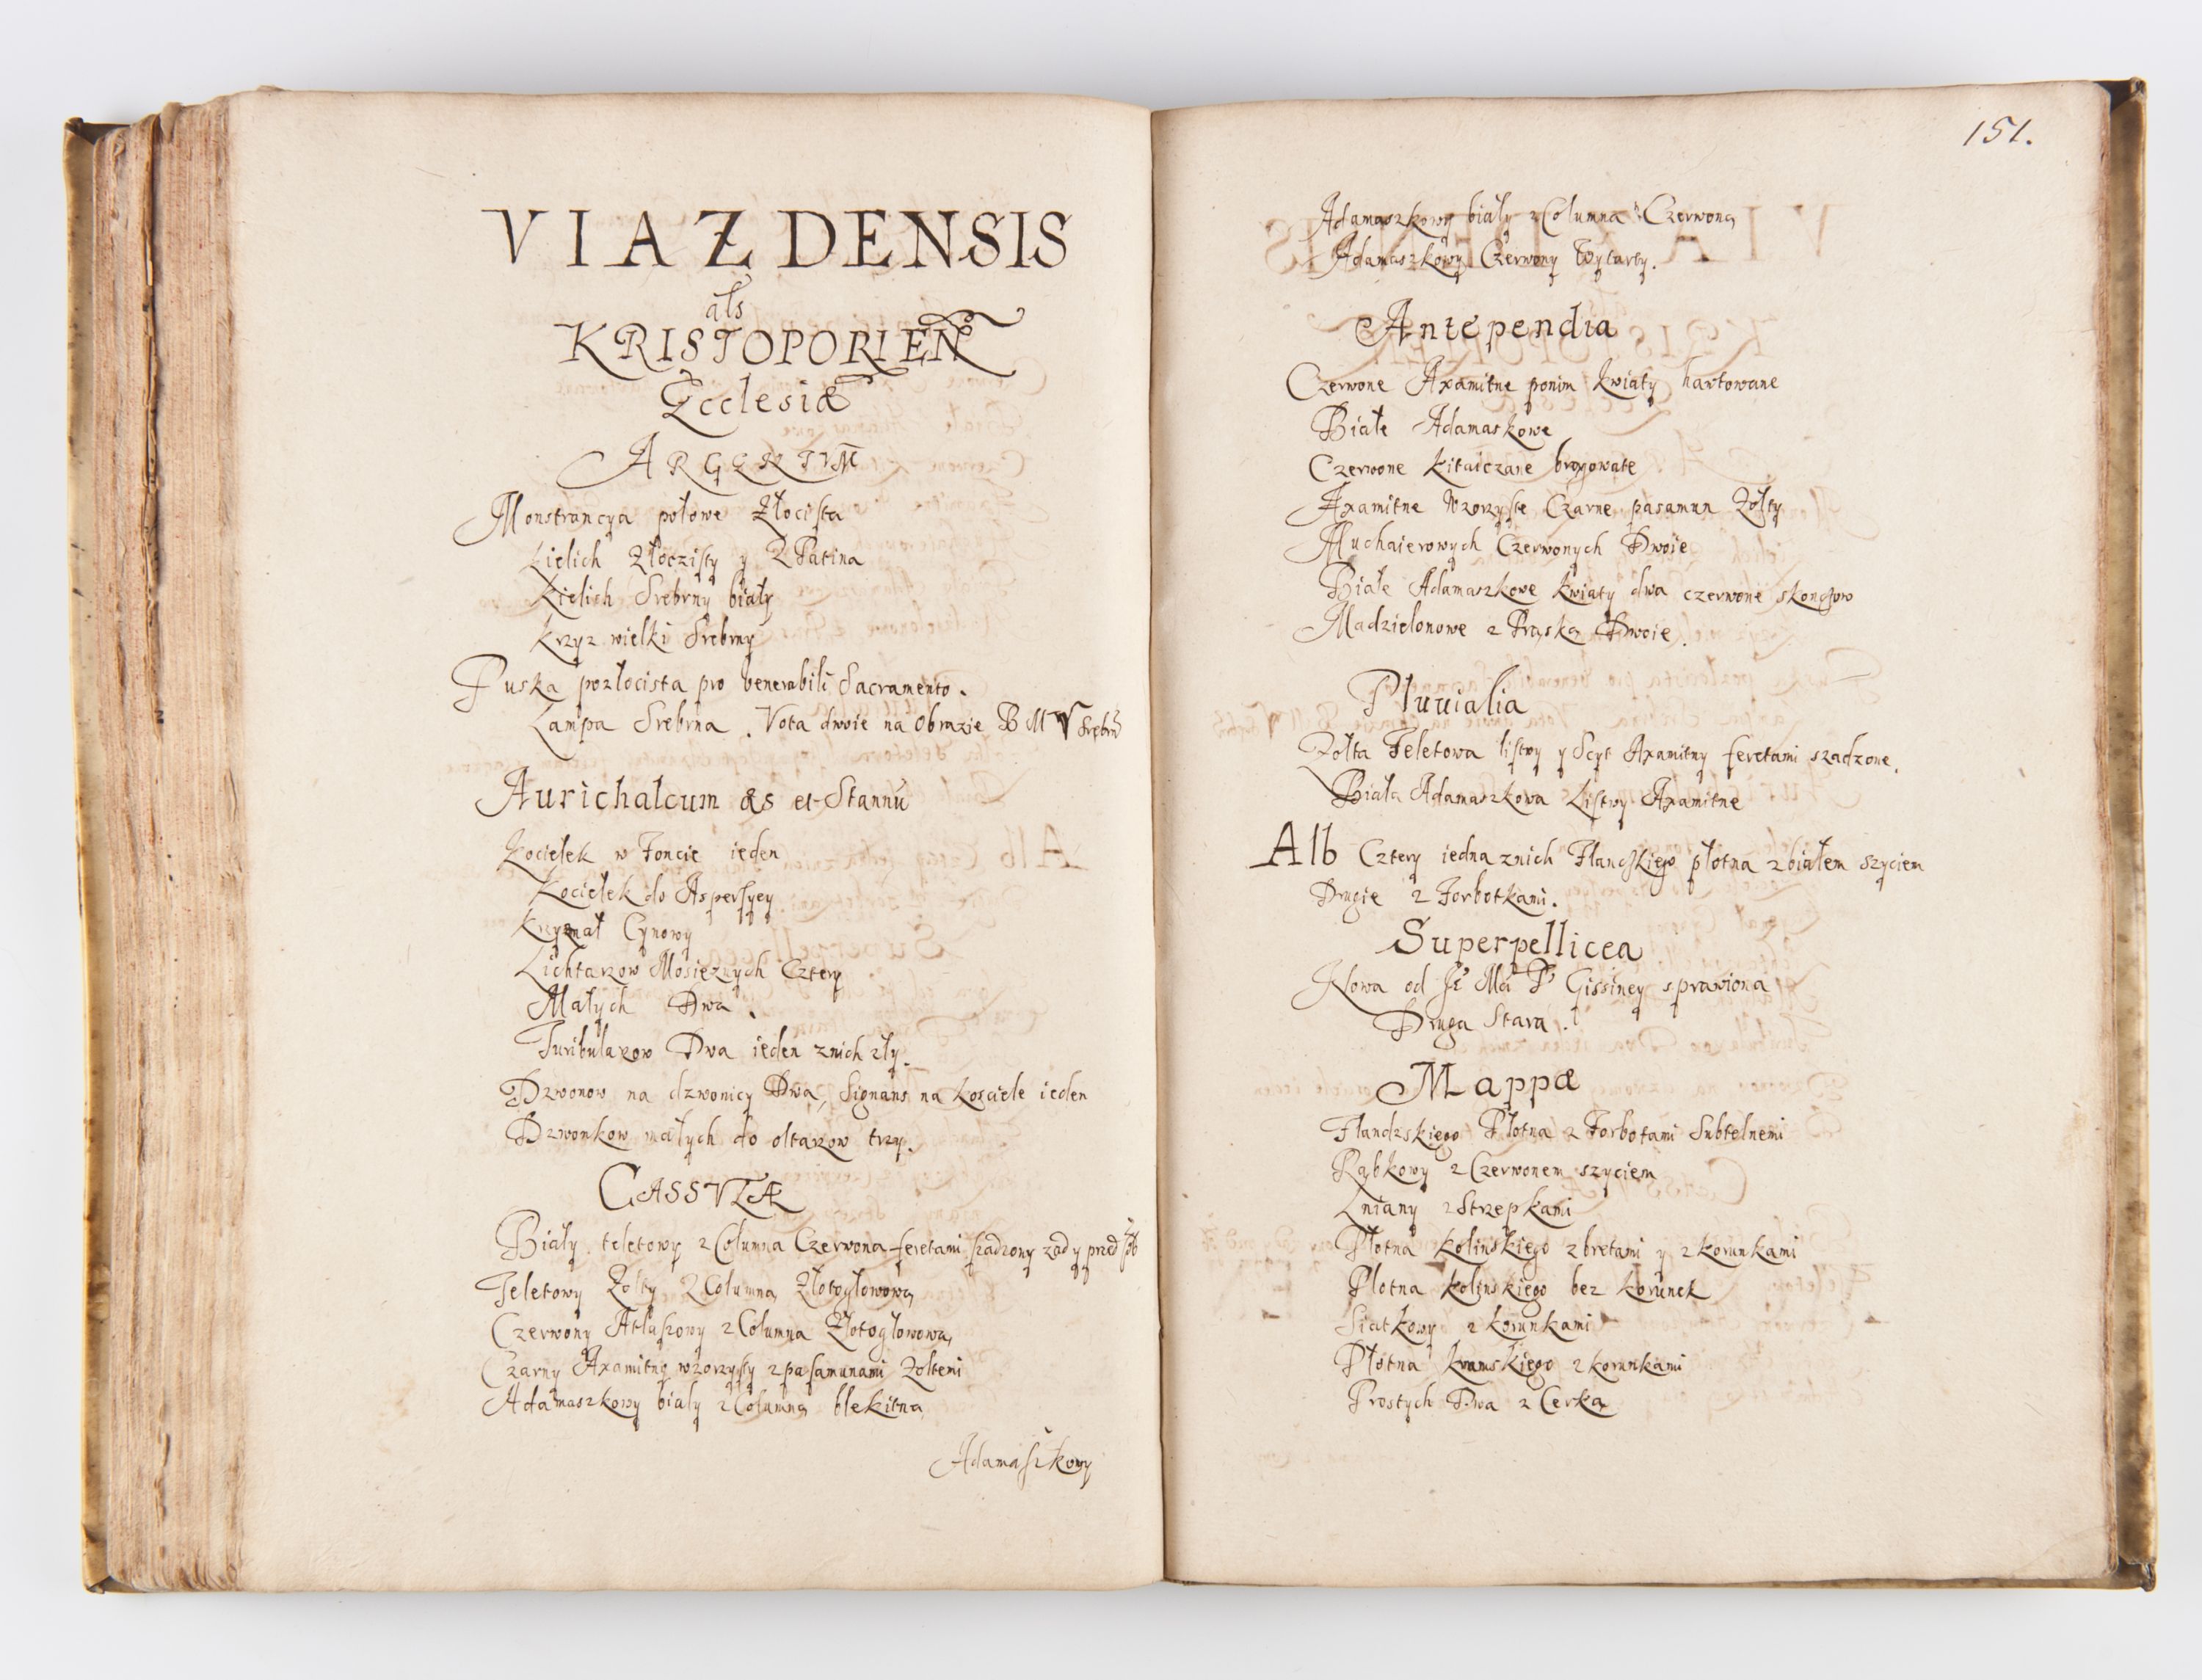 VIAZDENSIS
als
KRISTOPORIEN
Ecclesiæ
ARGENTVM
Monstrancya połowe Złocista
Kielich Złoczisty y Z Patina
Kielich Srebrny biały
Krzyz wielki Srebrny
Puska pozłocista pro venerabili Sacramento.
Lampa Srebrna. Vota dwoie na Obrazie B M V Srebrn
Aurichalcum æs et Stannū
Kociełek w Foncie ieden
Kociełek do Aspersyey
Krzyzmał Cynowy
Lichtarzow Mosięznych Cztery
Małych Dwa.
Turibularzow Dwa ieden znich zły.
Dzwonow na dzwonicy Dwa, Signans na kosciele ieden
Dzwonkow małych do oltarzow trzy.
CASSVLÆ
Biały teletowy z Columna Czerwona feretami szadzony zad y przed
Teletowy Zołty Z Columną Złotogłowową
Czerwony Atłaszowy z Columna Złotogłowową
Czarny Axamitny wzorzysty z pasamunami Zołtemi
Adamaszkowy biały z Columną błekitną
Adamaszkowy
151.
Adamaszkowy biały z Columna Czerwoną
Adamaszkowy Czerwony Wytarty.
Antependia
Czerwone Axamitne ponim kwiaty haftowane
Białe Adamaskowe
Czerwone kitaiczane
Axamitne Wzorzyste Czarne pasamun Zołty
Muchaierowych Czerwonych Dwoie
Białe Adamaszkowe kwiaty dwa czerwone
Madzielonowe z Prąską Dwoie.
Pluuialia
Zołta Teletowa listwy y Scyt Axamitny feretami szadzone.
Biała Adamaszkowa Listwy Axamitne
Alb Cztery iedna znich płotna z białem szyciem
Drugie z Forbotkami.
Superpellicea
Nowa od Gissiney sprawiona
Druga Stara.
Mappæ
Flandzskiego Płotna z Forbotami Subtelnemi
Rąbkowy z Czerwonem szyciem
Lniany z Strzępkami
Płotna kolinskiego z bretami y z korunkami
Płotna kolinskiego bez korunek
Siatkowy z korunkami
Płotna kramskiego z korunkami
Prostych Dwa z Cerką